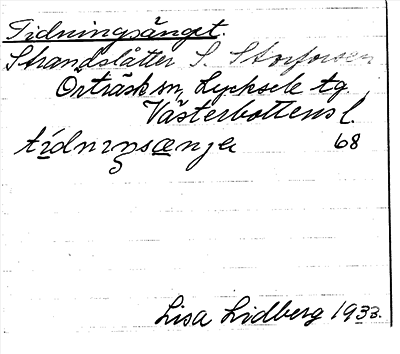 Tidningsänget.
Strandslåtter S. Storforsen
Örträsk sn, Lycksele tg.
Västerbottens l.
tídnıŋsænʒɐ 68
Lisa Lidberg 1933.